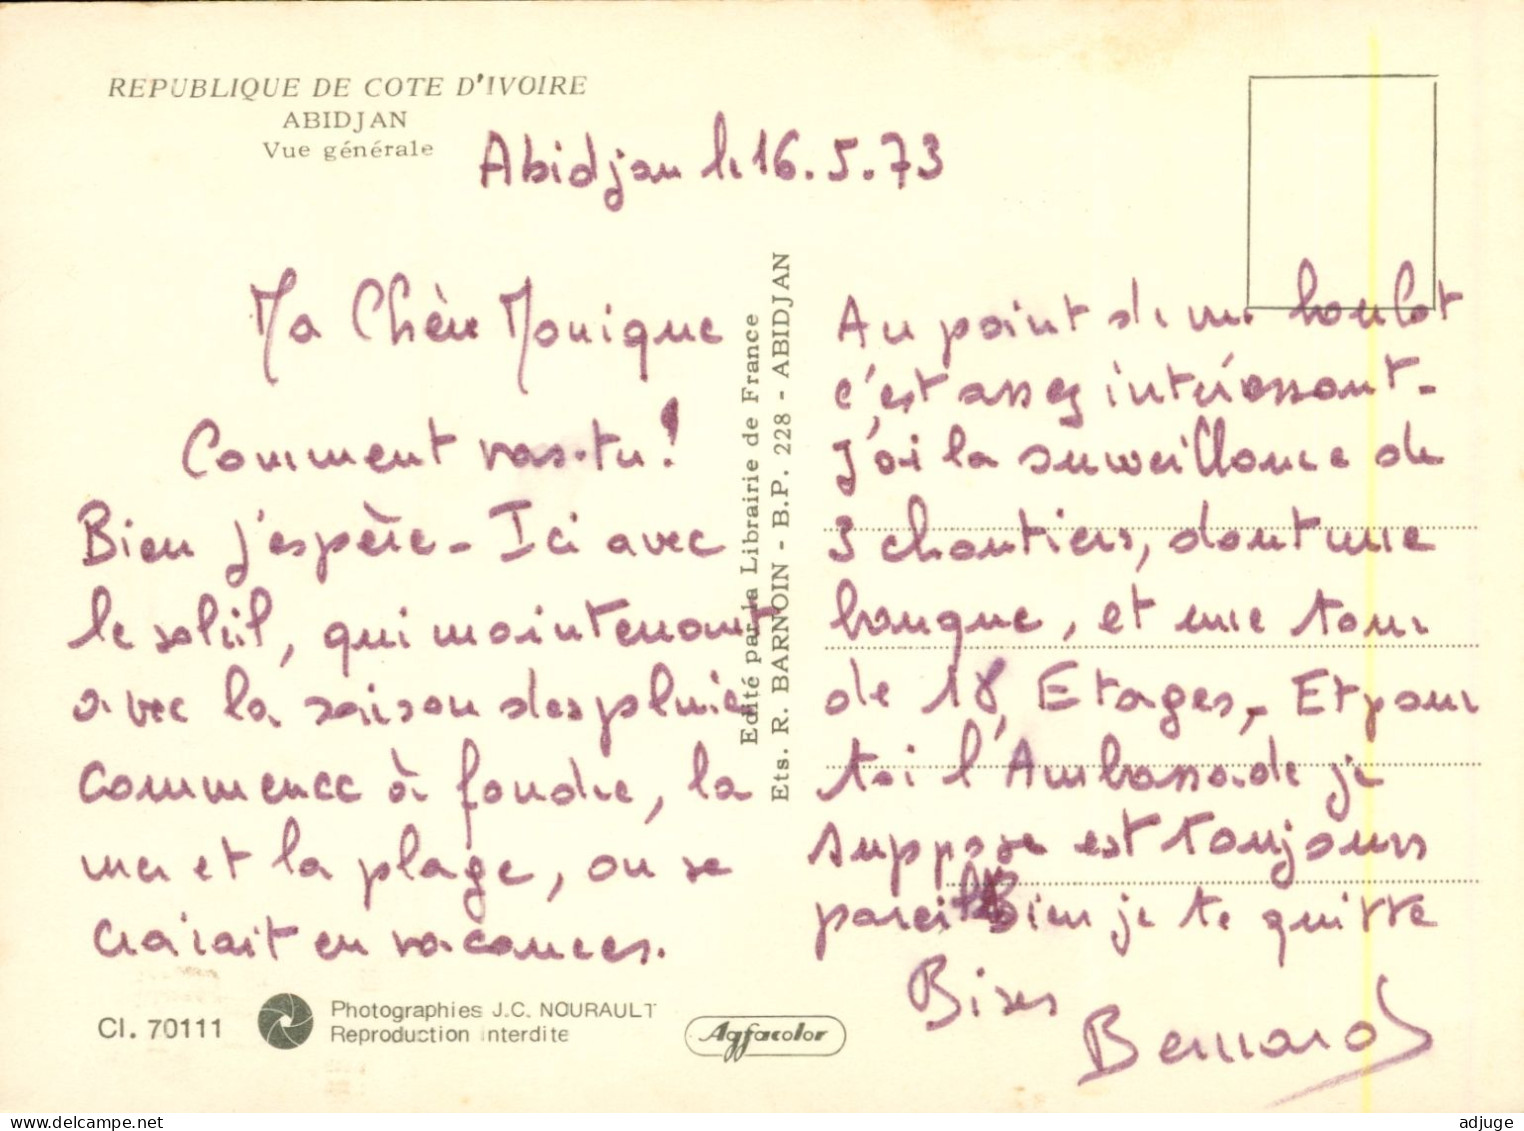 REPUBLIQUE DE COTE D'IVOIRE
ABIDJAN
Vue générale
Abidjan le 16.5.73
Ma Chère Monique
Comment vas-tu!
Bien j'espère - Ici avec
le soleil, qui maintenant
avec la saison des pluie
commence à foudre, la
mer et la plage, on se
craiait en vacances.
Edité par la Librairie de France
Ets. R. BARNOIN - B.P. 228 - ABIDJAN
Au point de vue boulot
c'est assez intéressant -
J'ai la surveillance de
3 chantiers, dont une
banque, et une tour
de 18 Etages, - Et pour
toi l'Ambassade je
suppose est toujours
pareil Bien je te quitte
Bises
Bernard
Cl. 70111
Photographies J.C. NOURAULT
Reproduction interdite
Agfacolor
adjuge
delcampe.net